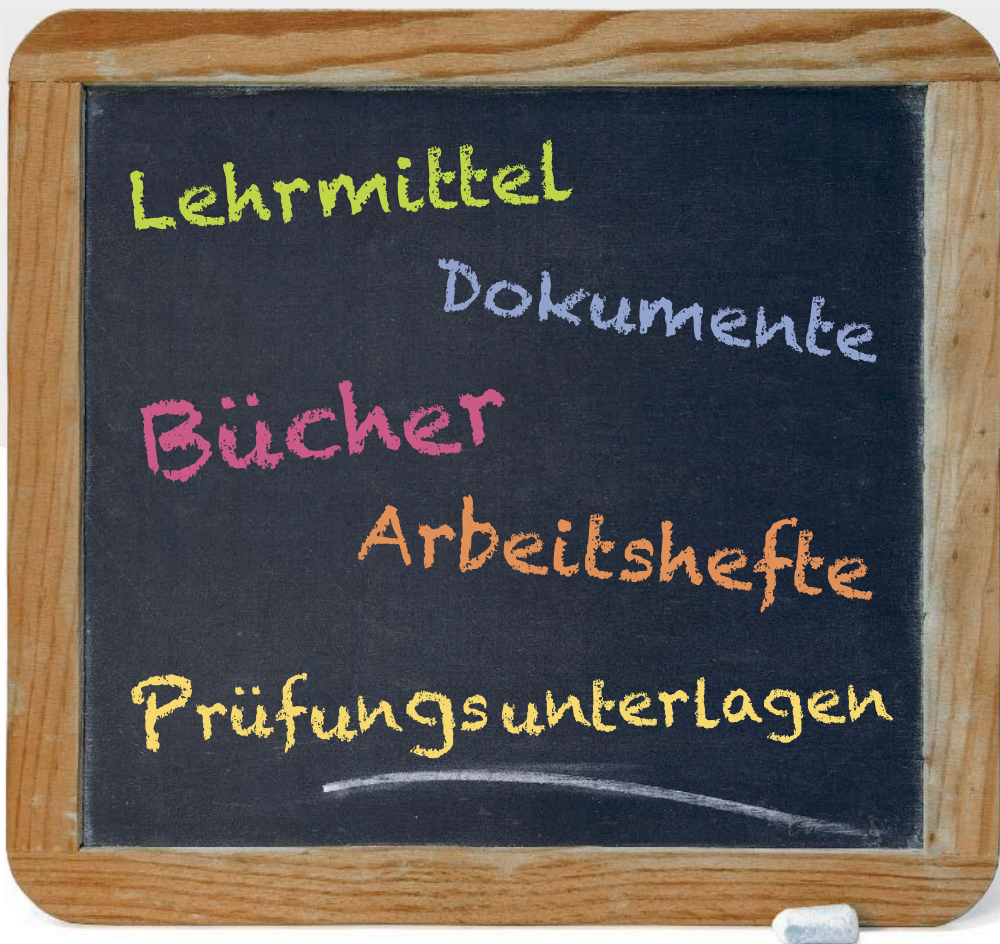 Lehrmittel
Dokumente
Bücher
Arbeitshefte
Prüfungsunterlagen